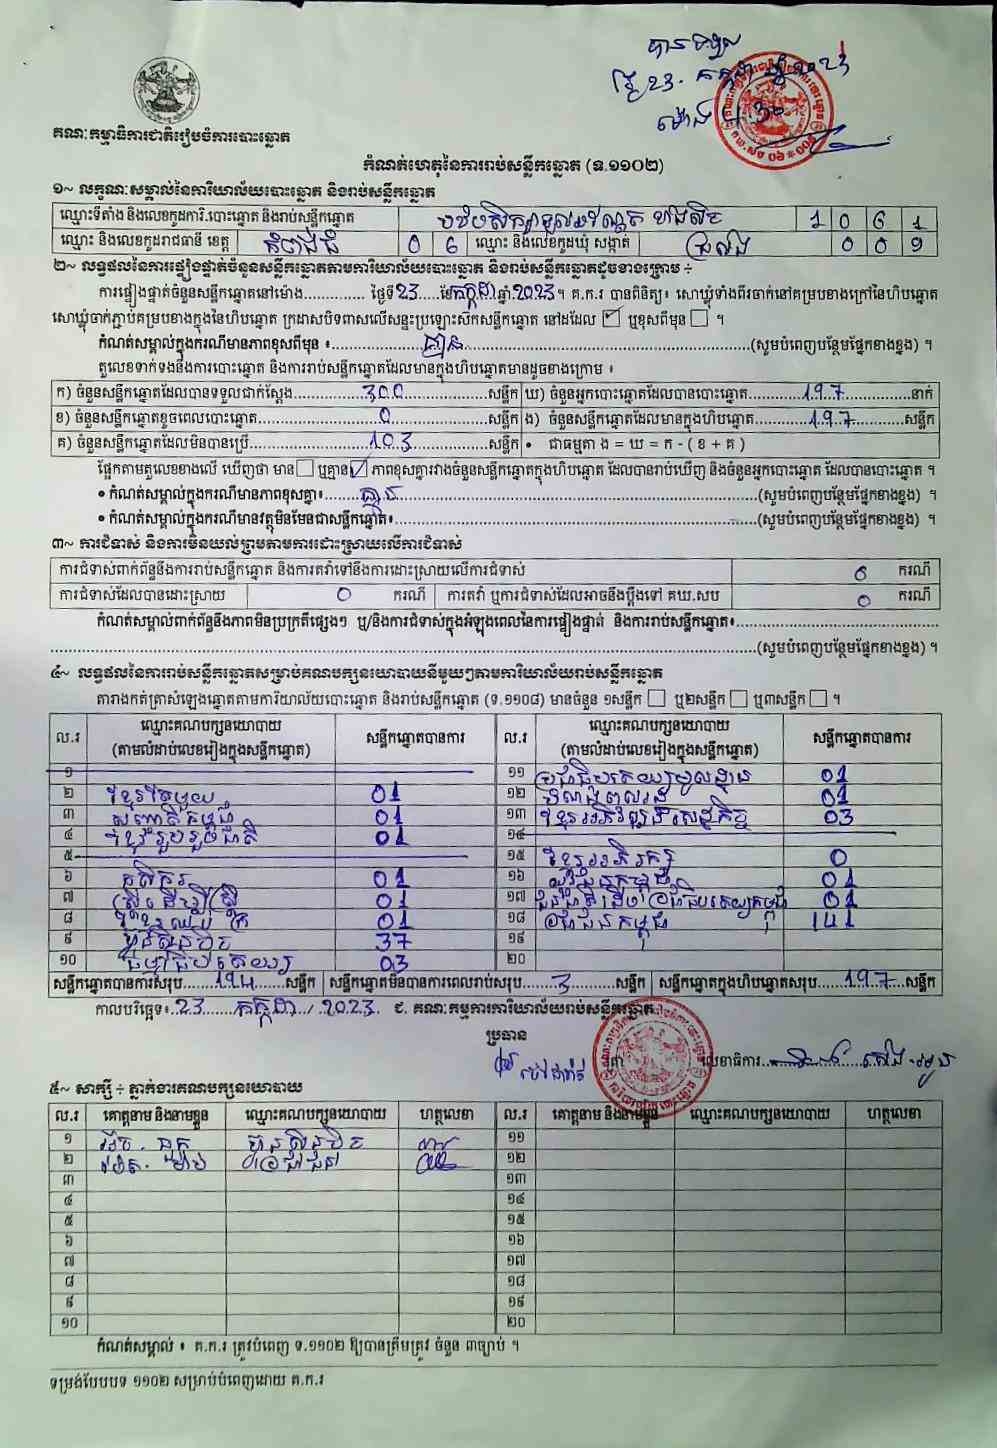 បានទទួល
ថ្ងៃ 23. កក្កដា ឆ្នាំ 2023
ម៉ោង 4:30
គណៈកម្មាធិការជាតិរៀបចំការបោះឆ្នោត
កំណត់ហេតុនៃការរាប់សន្លឹកឆ្នោត (ទ.១១០២)
១~ លក្ខណៈសម្គាល់នៃការិយាល័យបោះឆ្នោត និងរាប់សន្លឹកឆ្នោត
ឈ្មោះទីតាំង និងលេខកូដការិ.បោះឆ្នោត និងរាប់សន្លឹកឆ្នោត 1 0 6 1
ឈ្មោះ និងលេខកូដរាជធានី ខេត្ត កំពង់ធំ 0 6 ឈ្មោះ និងលេខកូដឃុំ សង្កាត់ 0 0 9
២~ លទ្ធផលនៃការផ្ទៀងផ្ទាត់ចំនួនសន្លឹកឆ្នោតតាមការិយាល័យបោះឆ្នោត និងរាប់សន្លឹកឆ្នោតដូចខាងក្រោម ÷
ការផ្ទៀងផ្ទាត់ចំនួនសន្លឹកឆ្នោតនៅម៉ោង.............. ថ្ងៃទី23....ខែកក្កដា..ឆ្នាំ.2023។ គ.ក.រ បានពិនិត្យ៖ សោឃ្លុំទាំងពីរចាក់នៅគម្របខាងក្រៅនៃហិបឆ្នោត
សោឃ្លុំចាក់ភ្ជាប់គម្របខាងក្នុងនៃហិបឆ្នោត ក្រដាសបិទពាសលើសន្ទះប្រឡោះស៊កសន្លឹកឆ្នោត នៅដដែល ☑ ឬខុសពីមុន ☐ ។
កំណត់សម្គាល់ក្នុងករណីមានភាពខុសពីមុន ៖ គ្មាន (សូមបំពេញបន្ថែមផ្នែកខាងខ្នង) ។
តួលេខទាក់ទងនឹងការបោះឆ្នោត និងការរាប់សន្លឹកឆ្នោតដែលមានក្នុងហិបឆ្នោតមានដូចខាងក្រោម ៖
ក) ចំនួនសន្លឹកឆ្នោតដែលបានទទួលជាក់ស្តែង 300 សន្លឹក ឃ) ចំនួនអ្នកបោះឆ្នោតដែលបានបោះឆ្នោត 197 នាក់
ខ) ចំនួនសន្លឹកឆ្នោតខូចពេលបោះឆ្នោត 0 សន្លឹក ង) ចំនួនសន្លឹកឆ្នោតដែលមានក្នុងហិបឆ្នោត 197 សន្លឹក
គ) ចំនួនសន្លឹកឆ្នោតដែលមិនបានប្រើ 103 សន្លឹក • ជាធម្មតា ង = ឃ = ក - ( ខ + គ )
ផ្អែកតាមតួលេខខាងលើ ឃើញថា មាន ☐ ឬគ្មាន ☑ ភាពខុសគ្នារវាងចំនួនសន្លឹកឆ្នោតក្នុងហិបឆ្នោត ដែលបានរាប់ឃើញ និងចំនួនអ្នកបោះឆ្នោត ដែលបានបោះឆ្នោត ។
• កំណត់សម្គាល់ក្នុងករណីមានភាពខុសគ្នា៖ គ្មាន (សូមបំពេញបន្ថែមផ្នែកខាងខ្នង) ។
• កំណត់សម្គាល់ក្នុងករណីមានវត្ថុមិនមែនជាសន្លឹកឆ្នោត៖ (សូមបំពេញបន្ថែមផ្នែកខាងខ្នង) ។
៣~ ការជំទាស់ និងការមិនយល់ព្រមតាមការដោះស្រាយលើការជំទាស់
ការជំទាស់ពាក់ព័ន្ធនឹងការរាប់សន្លឹកឆ្នោត និងការតវ៉ាទៅនឹងការដោះស្រាយលើការជំទាស់ 0 ករណី
ការជំទាស់ដែលបានដោះស្រាយ 0 ករណី ការតវ៉ា ឬការជំទាស់ដែលអាចនឹងប្តឹងទៅ គឃ.សប 0 ករណី
កំណត់សម្គាល់ពាក់ព័ន្ធនឹងភាពមិនប្រក្រតីផ្សេងៗ ឬ/និងការជំទាស់ក្នុងអំឡុងពេលនៃការផ្ទៀងផ្ទាត់ និងការរាប់សន្លឹកឆ្នោត៖
(សូមបំពេញបន្ថែមផ្នែកខាងខ្នង) ។
៤~ លទ្ធផលនៃការរាប់សន្លឹកឆ្នោតសម្រាប់គណបក្សនយោបាយនីមួយៗតាមការិយាល័យរាប់សន្លឹកឆ្នោត
តារាងកត់ត្រាសំឡេងឆ្នោតតាមការិយាល័យបោះឆ្នោត និងរាប់សន្លឹកឆ្នោត (ទ.១១០៨) មានចំនួន ១សន្លឹក ☐ ឬ២សន្លឹក ☐ ឬ៣សន្លឹក ☐ ។
ល.រ ឈ្មោះគណបក្សនយោបាយ (តាមលំដាប់លេខរៀងក្នុងសន្លឹកឆ្នោត) សន្លឹកឆ្នោតបានការ ល.រ ឈ្មោះគណបក្សនយោបាយ (តាមលំដាប់លេខរៀងក្នុងសន្លឹកឆ្នោត) សន្លឹកឆ្នោតបានការ
១ ១១ ប្រជាធិបតេយ្យមូលដ្ឋាន 01
២ ខ្មែរតែមួយ 01 ១២ 01
៣ សញ្ជាតិកម្ពុជា 01 ១៣ ខ្មែរអភិវឌ្ឍន៍សេដ្ឋកិច្ច 03
៤ ខ្មែររួបរួមជាតិ 01 ១៤
៥ ១៥ ខ្មែរអភិរក្ស 0
៦ កសិករ 01 ១៦ យុវជនកម្ពុជា 01
៧ ស្ត្រីដើម្បីស្ត្រី 01 ១៧ ជនជាតិដើមប្រជាធិបតេយ្យកម្ពុជា 01
៨ 01 ១៨ ប្រជាជនកម្ពុជា 141
៩ ហ៊្វុនស៊ិនប៉ិច 37 ១៩
១០ ធម្មាធិបតេយ្យ 03 ២០
សន្លឹកឆ្នោតបានការសរុប 194 សន្លឹក សន្លឹកឆ្នោតមិនបានការពេលរាប់សរុប 3 សន្លឹក សន្លឹកឆ្នោតក្នុងហិបឆ្នោតសរុប 197 សន្លឹក
កាលបរិច្ឆេទ៖ 23 កក្កដា / 2023 ជ. គណៈកម្មការការិយាល័យរាប់សន្លឹកឆ្នោត
ប្រធាន
លេខាធិការ
៥~ សាក្សី ÷ ភ្នាក់ងារគណបក្សនយោបាយ
ល.រ គោត្តនាម និងនាមខ្លួន ឈ្មោះគណបក្សនយោបាយ ហត្ថលេខា ល.រ គោត្តនាម និងនាមខ្លួន ឈ្មោះគណបក្សនយោបាយ ហត្ថលេខា
១ ហ៊្វុនស៊ិនប៉ិច ១១
២ ប្រជាជន ១២
៣ ១៣
៤ ១៤
៥ ១៥
៦ ១៦
៧ ១៧
៨ ១៨
៩ ១៩
១០ ២០
កំណត់សម្គាល់ ៖ គ.ក.រ ត្រូវបំពេញ ទ.១១០២ ឱ្យបានត្រឹមត្រូវ ចំនួន ៣ច្បាប់ ។
ទម្រង់បែបបទ ១១០២ សម្រាប់បំពេញដោយ គ.ក.រ